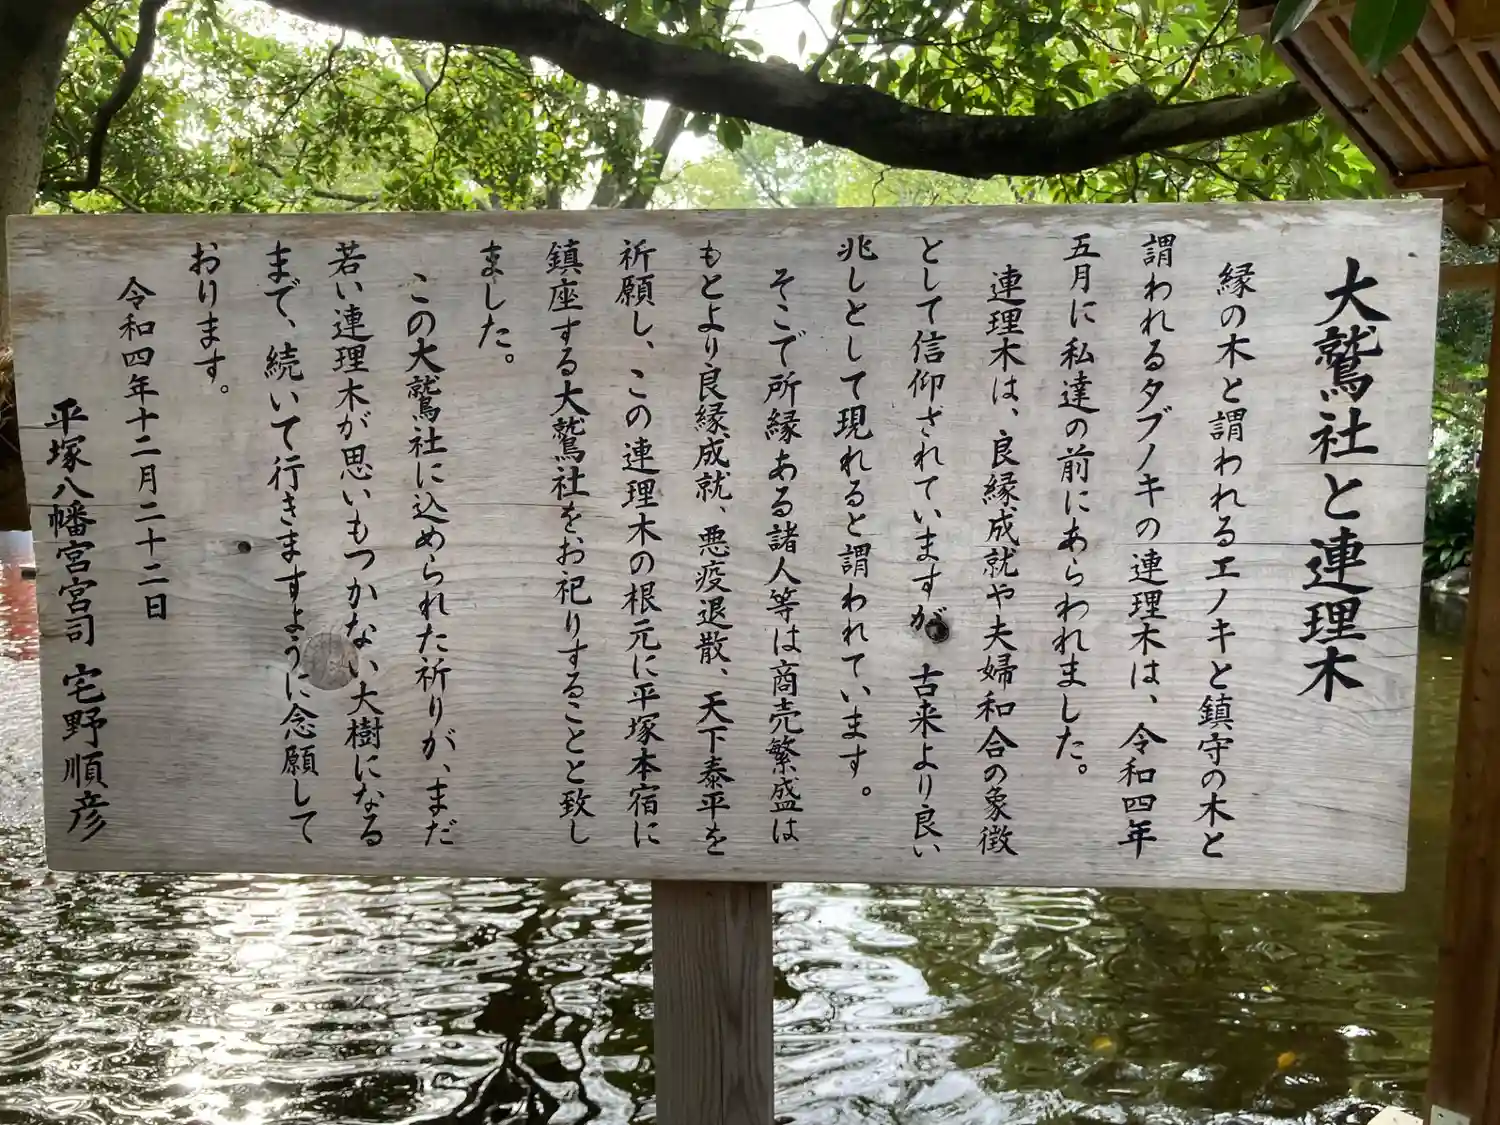 大鷲社と連理木
縁の木と謂われるエノキと鎮守の木と
謂われるタブノキの連理木は、令和四年
五月に私達の前にあらわれました。
連理木は、良縁成就や夫婦和合の象徴
として信仰されていますが、古来より良い
兆しとして現れると謂われています。
そこで所縁ある諸人等は商売繁盛は
もとより良縁成就、悪疫退散、天下泰平を
祈願し、この連理木の根元に平塚本宿に
鎮座する大鷲社をお祀りすることと致し
ました。
この大鷲社に込められた祈りが、まだ
若い連理木が思いもつかない大樹になる
まで、続いて行きますように念願して
おります。
令和四年十二月二十二日
平塚八幡宮宮司 宅野順彦